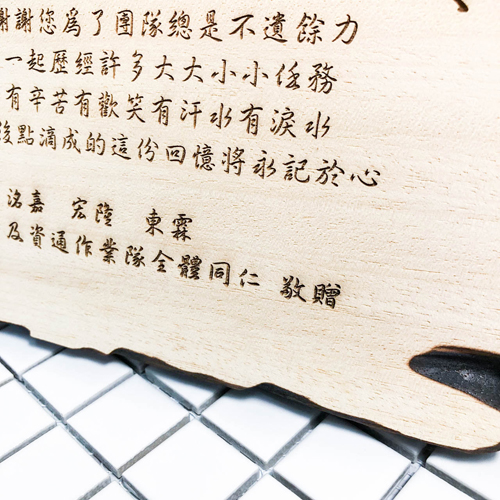 謝謝您為了團隊總是不遺餘力
一起歷經許多大大小小任務
有辛苦有歡笑有汗水有淚水
後點滴成的這份回憶將永記於心
洺嘉 宏陞 東霖
及資通作業隊全體同仁 敬贈